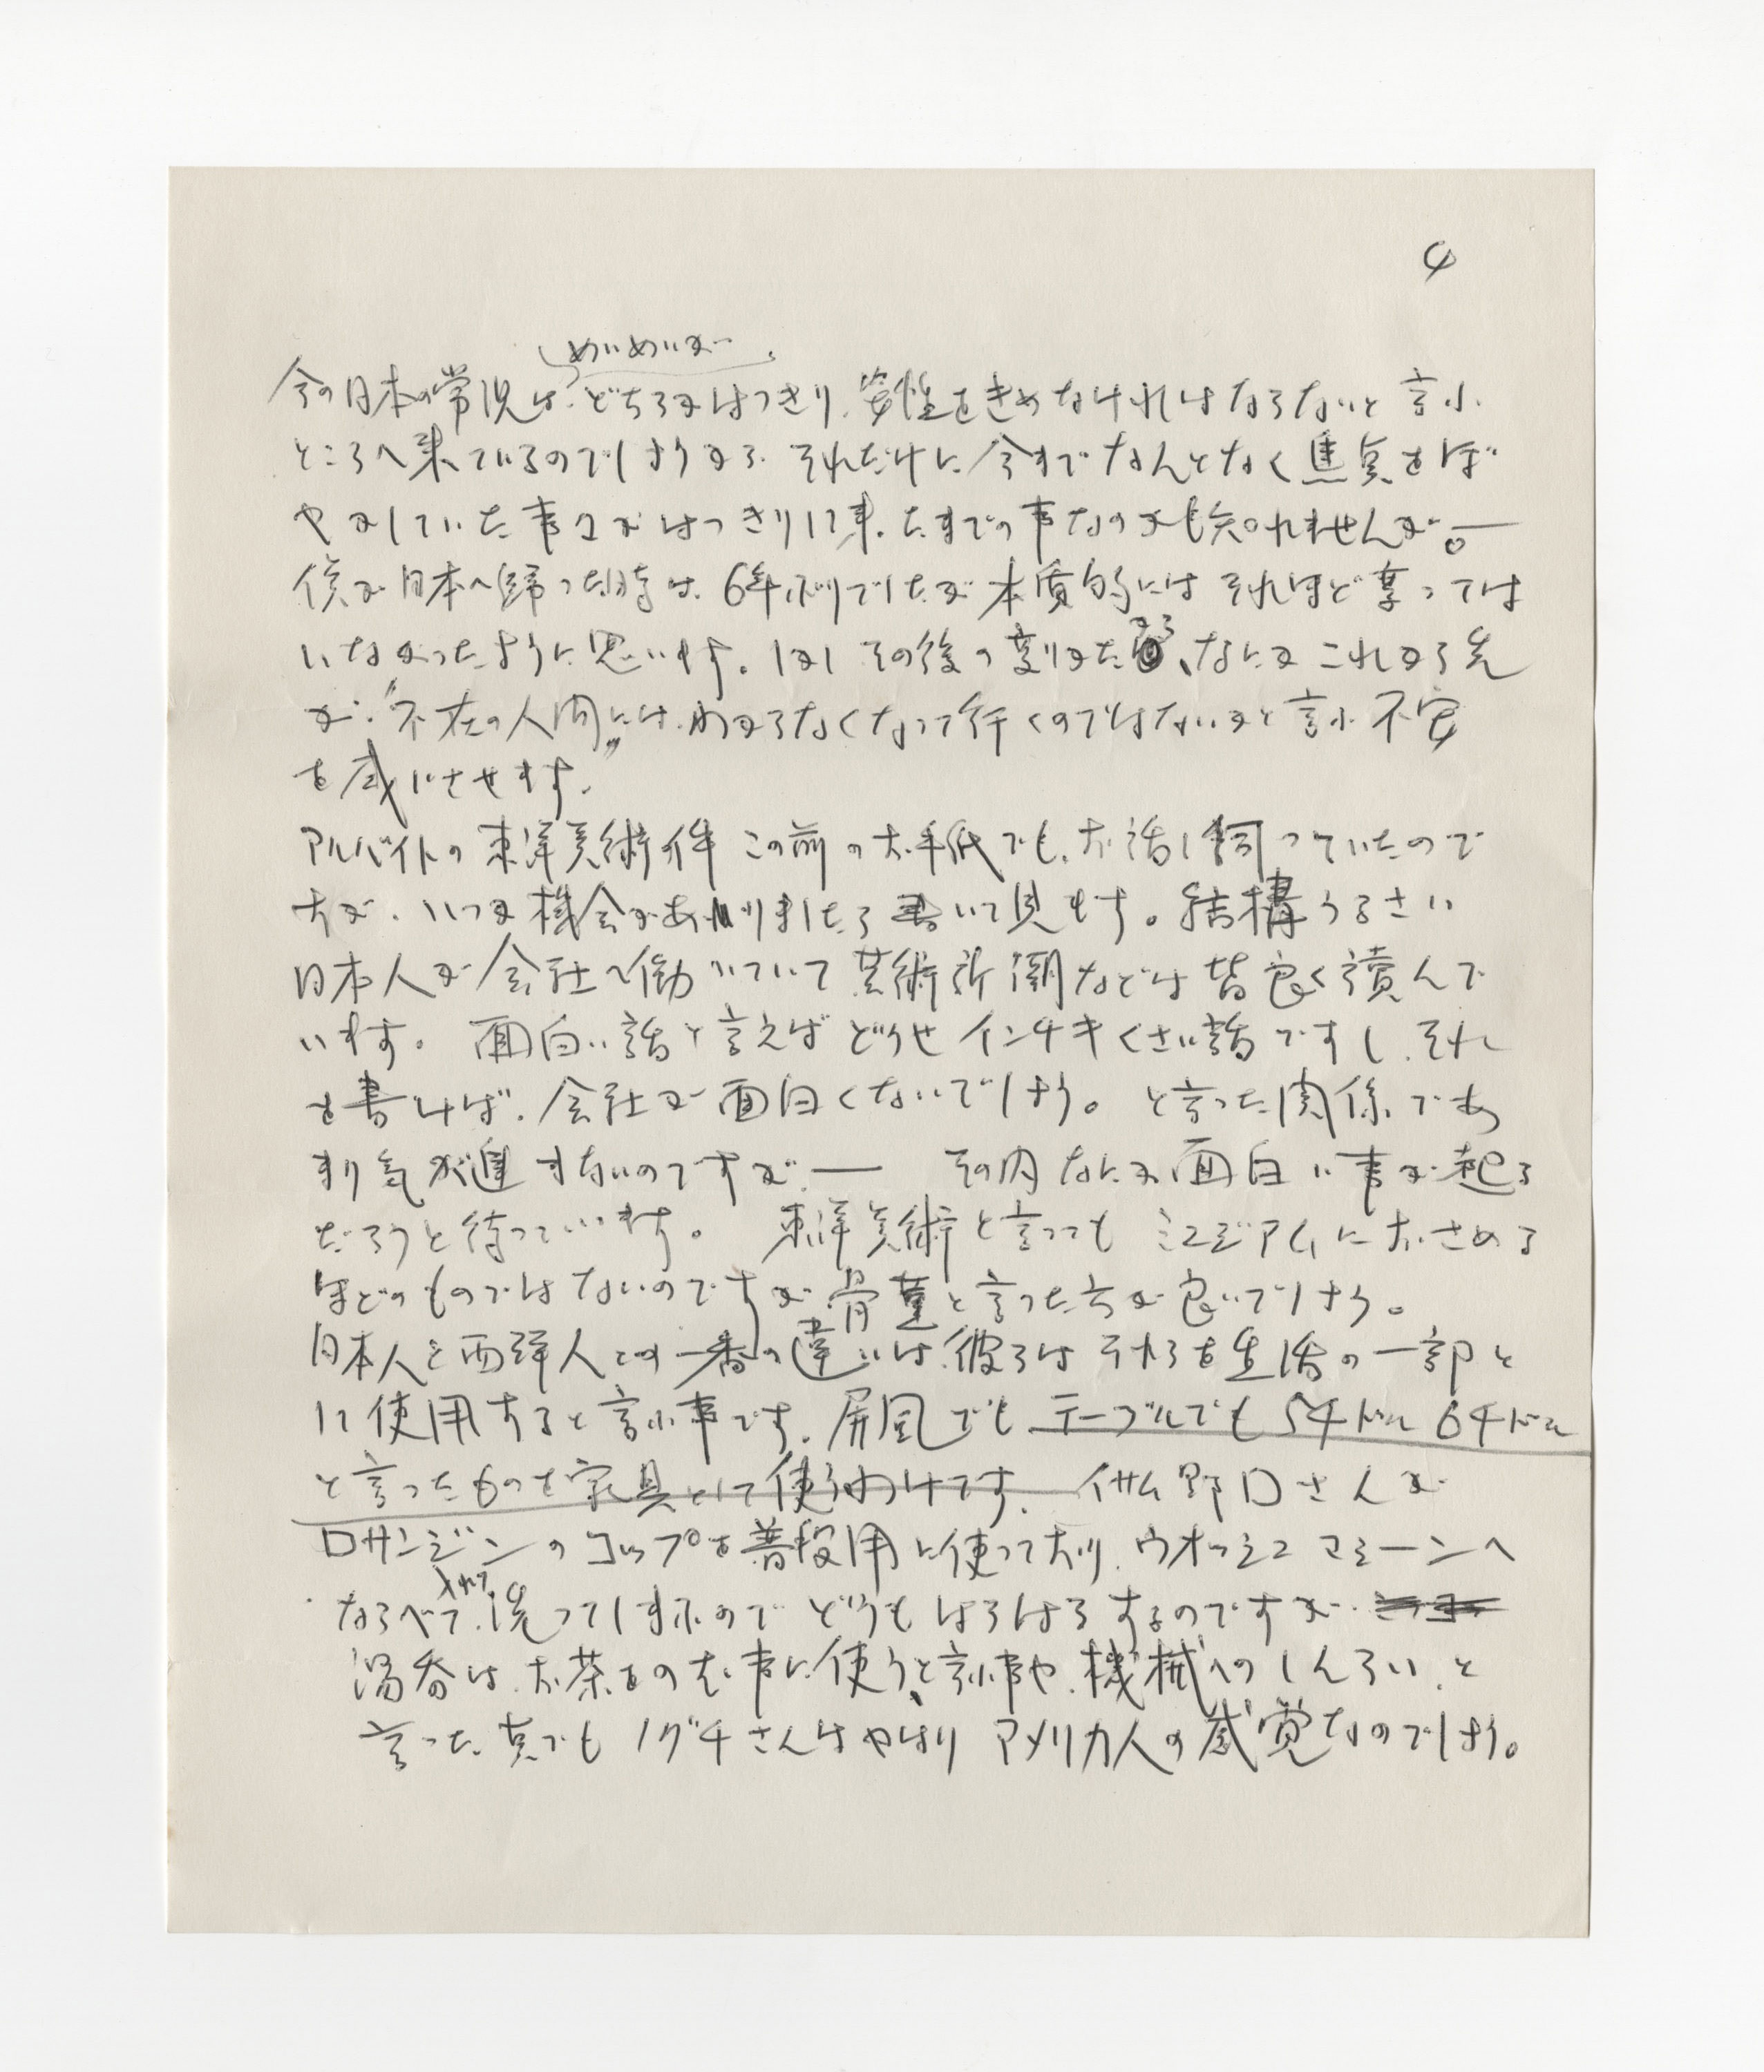 4
めいめいが
今の日本の常況は、どちらかはっきり、姿性をきめなければならないと言ふ
ところへ来ているのでしょうから、それだけに今までなんとなく焦点をぼ
やかしていた事々がはっきりして来たまでの事なのかも知れませんが。―
僕が日本へ帰った時は、6年ぶりでしたが本質的にはそれほど変っては
いなかったように思います。しかしその後の変りかたから、なにかこれから先
が、"不在の人間"には、わからなくなって行くのではないかと言ふ不安
を感じさせます。
アルバイトの東洋美術の件 この前のお手紙でも、お話し伺っていたので
すが、いつか機会がありましたら書いて見ます。結構うるさい
日本人が会社へ働いていて芸術新潮などは皆良く読んで
います。 面白い話と言えばどうせインチキくさい話ですし、それ
を書けば、会社が面白くないでしょう。と言った関係であ
まり気が進まないのですが、― その内なにか面白い事が起る
だろうと待っています。 東洋美術と言ってもミュジアムにおさめる
ほどのものではないのですが骨董と言った方が良いでしょう。
日本人と西洋人との一番の違いは、彼らはそれらを生活の一部と
して使用すると言ふ事です。屏風でもテーブルでも5千ドル6千ドル
と言ったものを家具として使うわけです。 イサム野口さんが
ロサンジンのコップを普段用に使っており、ウオッシュマシーンへ
ならべて入れて洗ってしまふのでどうもはらはらするのですが
湯呑は、お茶をのむ事に使うと言ふ事や、機械へのしんらい、と
言った点でもノグチさんはやはりアメリカ人の感覚なのでしょう。